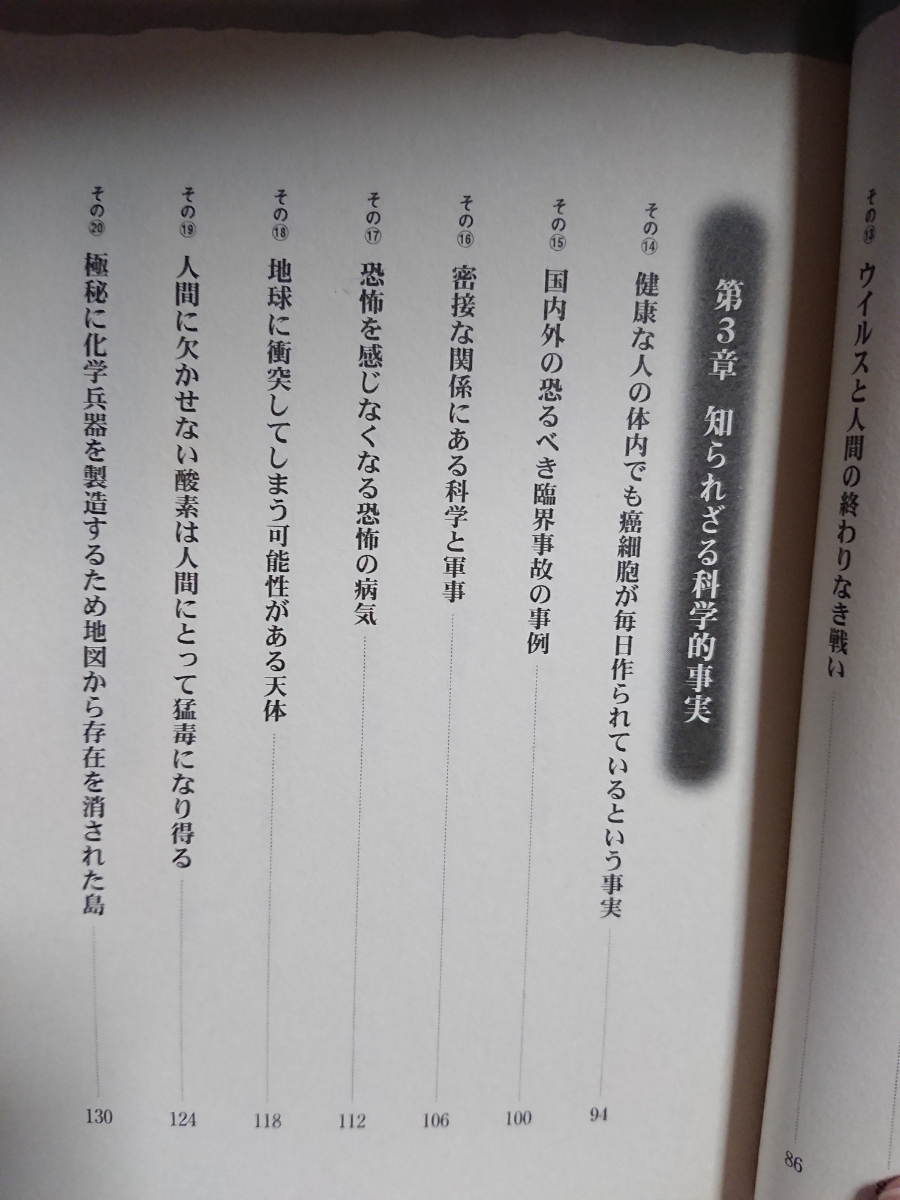 その⑬ ウイルスと人間の終わりなき戦い 86
第3章 知られざる科学的事実
その⑭ 健康な人の体内でも癌細胞が毎日作られているという事実 94
その⑮ 国内外の恐るべき臨界事故の事例 100
その⑯ 密接な関係にある科学と軍事 106
その⑰ 恐怖を感じなくなる恐怖の病気 112
その⑱ 地球に衝突してしまう可能性がある天体 118
その⑲ 人間に欠かせない酸素は人間にとって猛毒になり得る 124
その⑳ 極秘に化学兵器を製造するため地図から存在を消された島 130